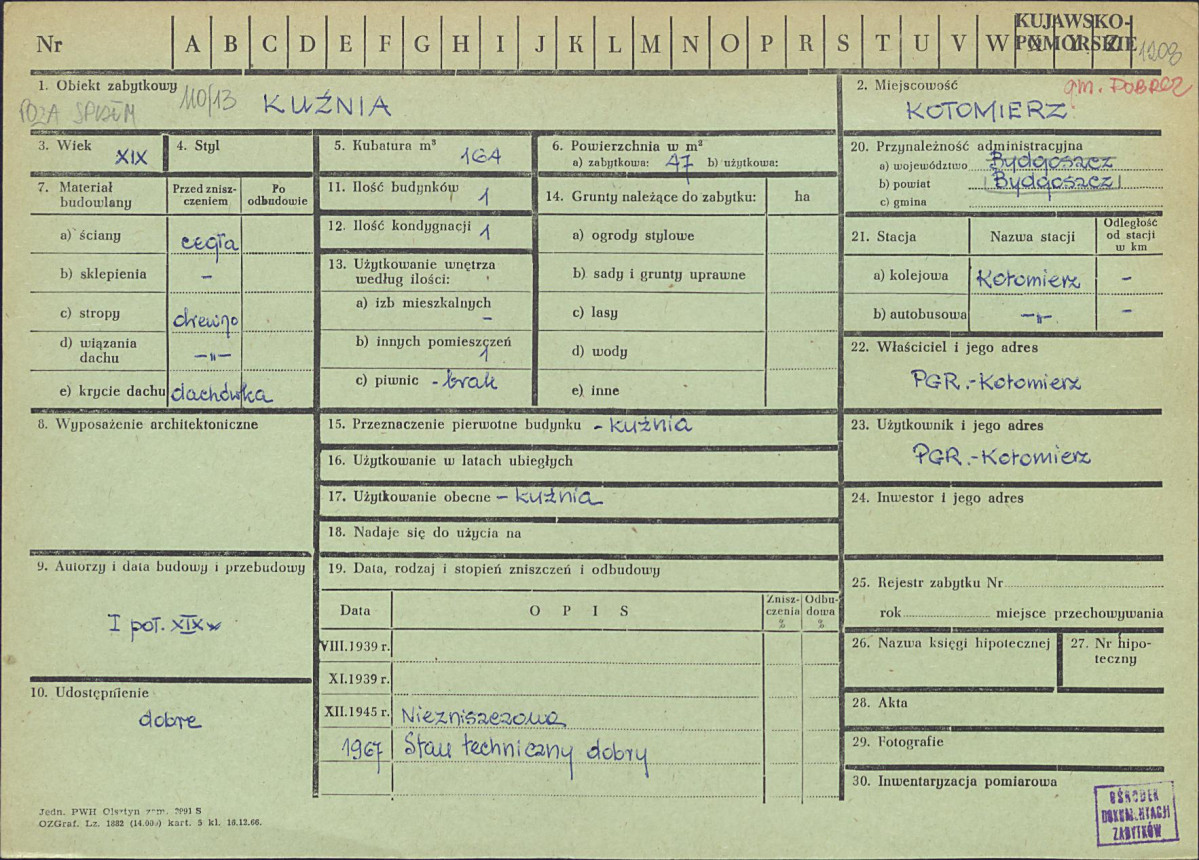 Nr A B C D E F G H I J K L M N O P R S T U V W X Y Z
KUJAWSKO-
POMORSKIE
1208
1. Obiekt zabytkowy
POZA SPISEM 110/13 KUŹNIA
2. Miejscowość
gm. DOBRCZ
KOTOMIERZ
3. Wiek XIX
4. Styl
5. Kubatura m³ 164
6. Powierzchnia w m²
a) zabytkowa: 47 b) użytkowa:
7. Materiał budowlany
Przed zniszczeniem
Po odbudowie
a) ściany cegła
b) sklepienia –
c) stropy drewno
d) wiązania dachu –"–
e) krycie dachu dachówka
8. Wyposażenie architektoniczne
9. Autorzy i data budowy i przebudowy
I poł. XIX w
10. Udostępnienie
dobre
11. Ilość budynków 1
12. Ilość kondygnacji 1
13. Użytkowanie wnętrza
według ilości:
a) izb mieszkalnych –
b) innych pomieszczeń 1
c) piwnic - brak
14. Grunty należące do zabytku: ha
a) ogrody stylowe
b) sady i grunty uprawne
c) lasy
d) wody
e) inne
15. Przeznaczenie pierwotne budynku - kuźnia
16. Użytkowanie w latach ubiegłych
17. Użytkowanie obecne - kuźnia
18. Nadaje się do użycia na
19. Data, rodzaj i stopień zniszczeń i odbudowy
Data OPIS Zniszczenia % Odbudowa %
VIII.1939 r.
XI.1939 r.
XII.1945 r. Niezniszczona
1967 Stan techniczny dobry
20. Przynależność administracyjna
a) województwo Bydgoszcz
b) powiat Bydgoszcz
c) gmina
21. Stacja Nazwa stacji Odległość od stacji w km
a) kolejowa Kotomierz –
b) autobusowa –"– –
22. Właściciel i jego adres
PGR.-Kotomierz
23. Użytkownik i jego adres
PGR.-Kotomierz
24. Inwestor i jego adres
25. Rejestr zabytku Nr
rok miejsce przechowywania
26. Nazwa księgi hipotecznej
27. Nr hipoteczny
28. Akta
29. Fotografie
30. Inwentaryzacja pomiarowa
OŚRODEK
DOKUMENTACJI
ZABYTKÓW
Jedn. PWH Olsztyn zam. 2991 S
OZGraf. Lz. 1882 (14.000) kart. 5 kl. 16.12.66.